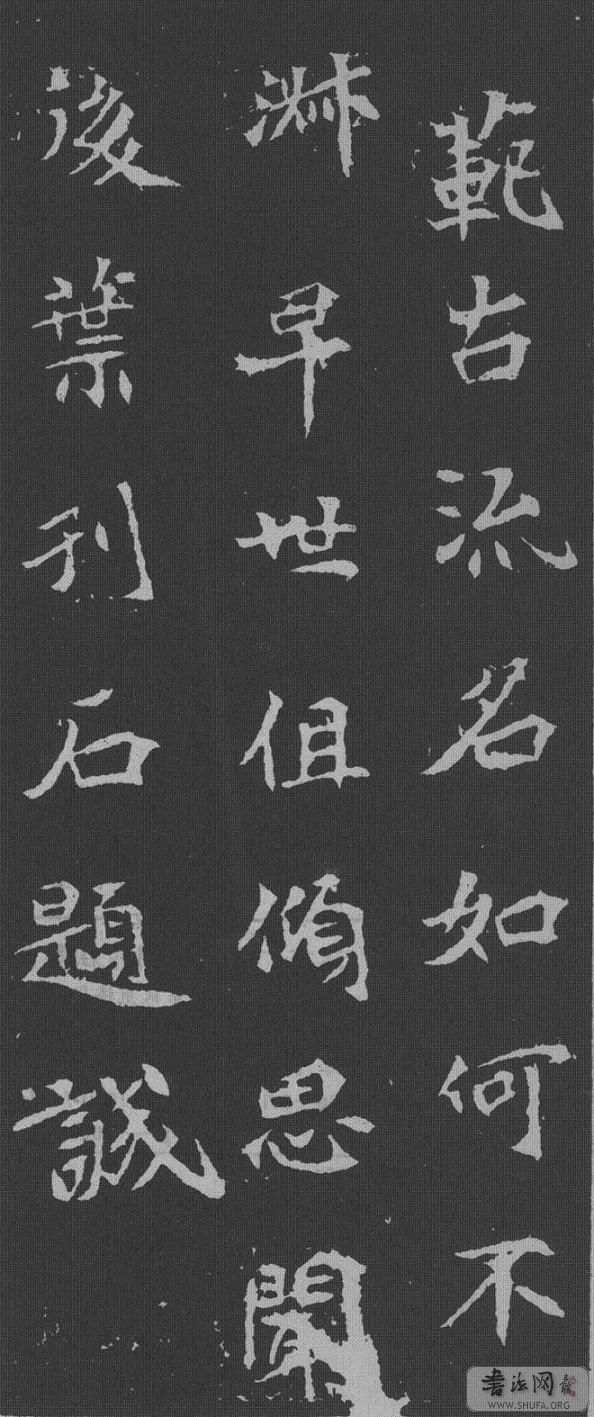 範古流名如何不
淑早世徂傾思聞
後葉刊石題誠
書法网
WWW.SHUFA.ORG